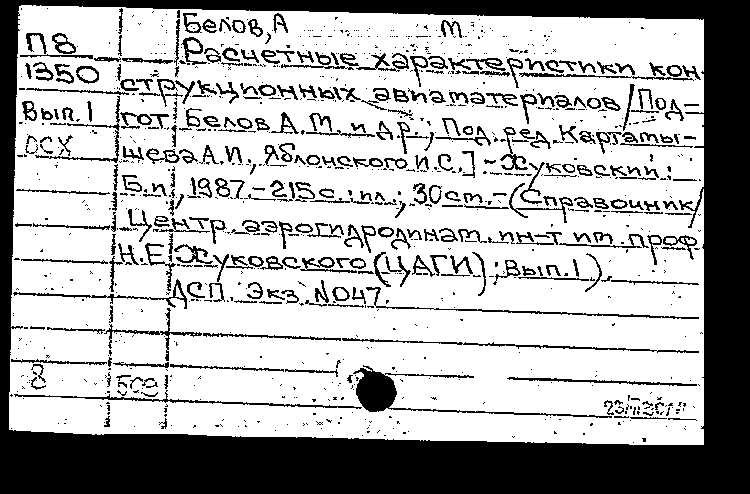 Белов, А М
П8 Расчетные характеристики кон-
1350 струкционных авиаматериалов / Под-
Вып. 1 гот. Белов А.М. и др.; Под. ред. Картамы-
ОСХ шева А.И., Яблонского И.С.] - Жуковский:
Б.и., 1987. - 215 с.: ил.; 30 см. - (Справочник/
Центр. аэрогидродинат. ин-т им. проф.
Н.Е. Жуковского (ЦАГИ); Вып. 1).
ДСП. Экз. N 047.
8